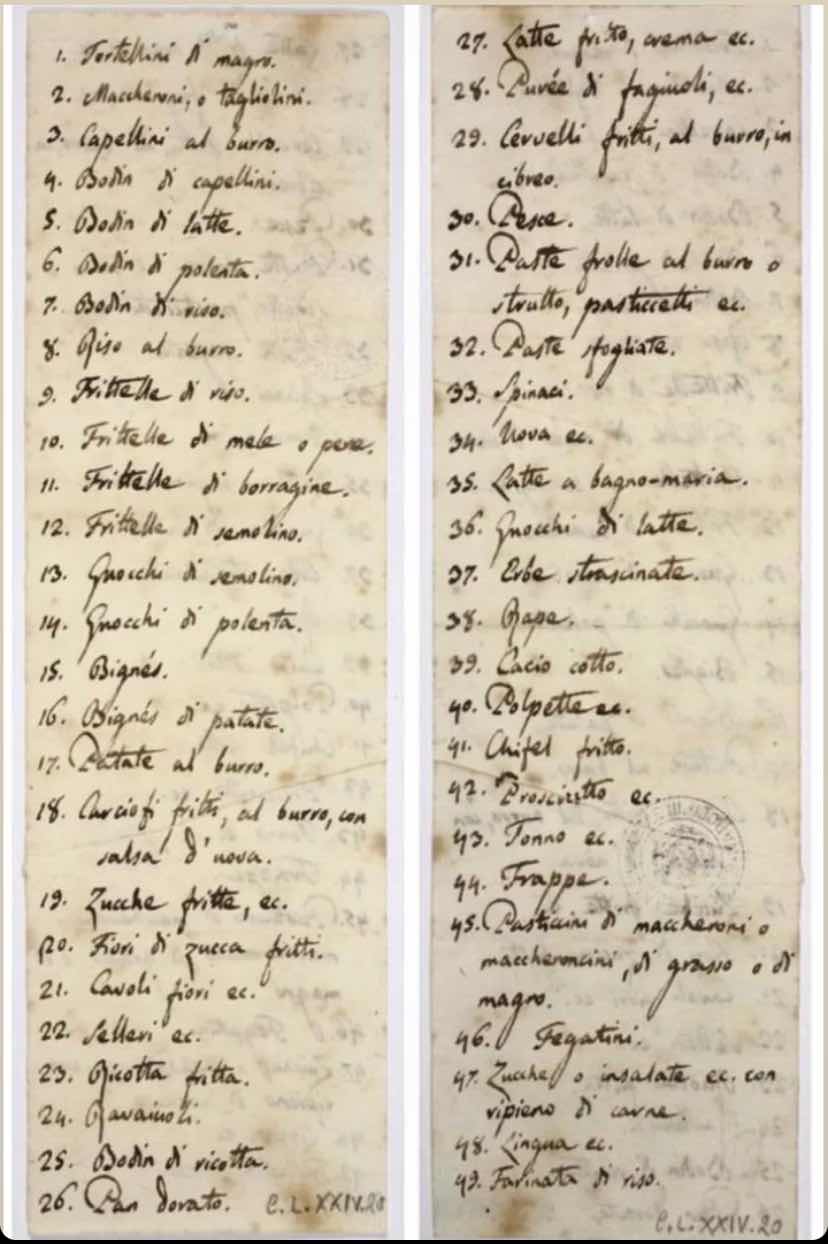 1. Tortellini di magro.
2. Maccheroni, o tagliolini.
3. Capellini al burro.
4. Bodin di capellini.
5. Bodin di latte.
6. Bodin di polenta.
7. Bodin di riso.
8. Riso al burro.
9. Frittelle di riso.
10. Frittelle di mele o pere.
11. Frittelle di borragine.
12. Frittelle di semolino.
13. Gnocchi di semolino.
14. Gnocchi di polenta.
15. Bignés.
16. Bignés di patate.
17. Patate al burro.
18. Carciofi fritti, al burro, con
salsa d'uova.
19. Zucche fritte, ec.
20. Fiori di zucca fritti.
21. Cavoli fiori ec.
22. Selleri ec.
23. Ricotta fritta.
24. Ravaiuoli.
25. Bodin di ricotta.
26. Pan dorato.
C.L.XXIV.20
27. Latte fritto, crema ec.
28. Purée di fagiuoli, ec.
29. Cervelli fritti, al burro, in
cibreo.
30. Pesce.
31. Paste frolle al burro o
strutto, pasticcetti ec.
32. Paste sfogliate.
33. Spinaci.
34. Uova ec.
35. Latte a bagno-maria.
36. Gnocchi di latte.
37. Erbe strascinate.
38. Rape.
39. Cacio cotto.
40. Polpette ec.
41. Chifel fritto.
42. Prosciutto ec.
43. Tonno ec.
44. Frappe.
45. Pasticcini di maccheroni o
maccheroncini, di grasso o di
magro.
46. Fegatini.
47. Zucche o insalate ec. con
ripieno di carne.
48. Lingua ec.
49. Farinata di riso.
C.L.XXIV.20